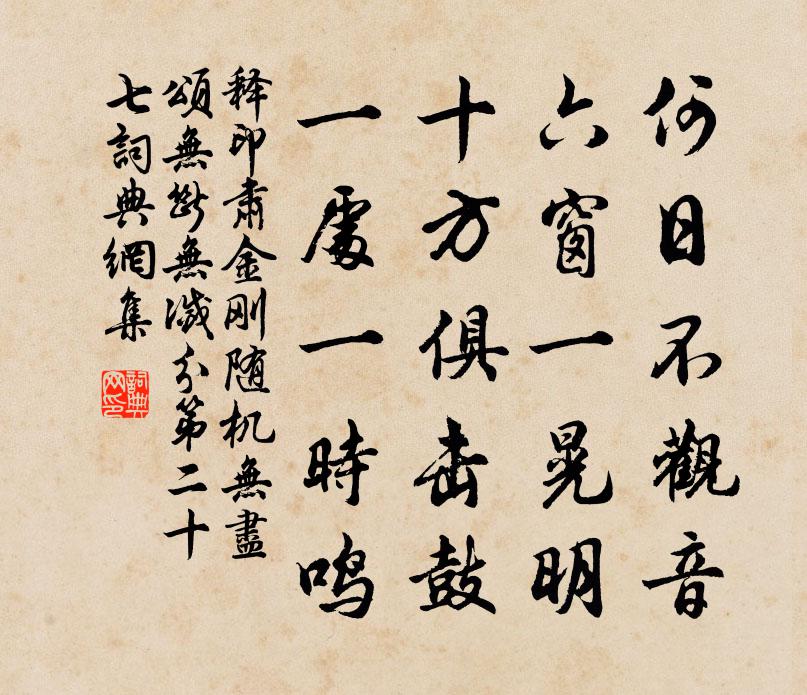 何日不觀音
六窗一晃明
十方俱击鼓
一處一時鸣
释印肃金刚随机無盡
頌無断無滅分第二十
七詞典網集
詞典
网印